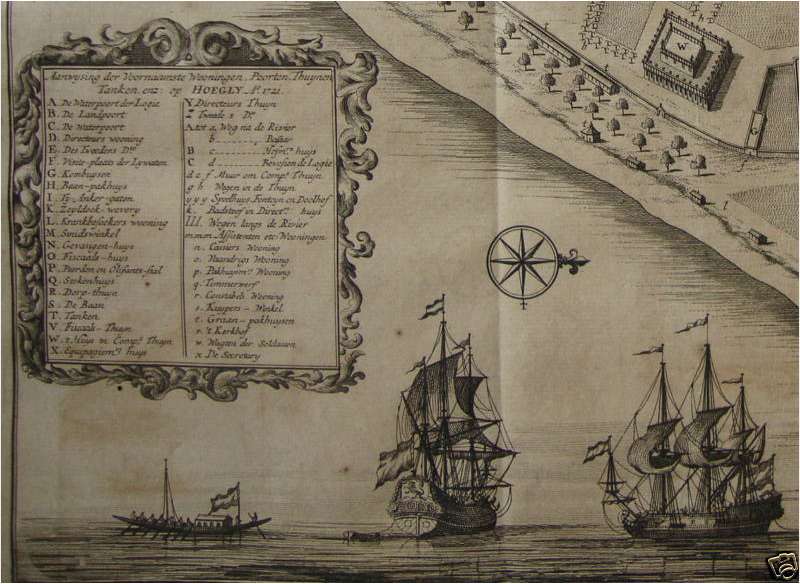 Aanwysing der Voornaamste Wooningen, Poorten, Thuynen
Tanken, enz: op HOEGLY Aº. 1721.
A. De Waterpoort der Logie
B. De Landpoort
C. De Waterpoort
D. Directeurs wooning
E. Des Tweedens Dº
F. Visite-plaats der Lywaten
G. Kombuysen
H. Baan-pakhuys
I. Ty-Anker-gaten
K. Zeyldoek-wevery
L. Krankbesoekers wooning
M. Smidswinkel
N. Gevangen-huys
O. Fiscaals-huys
P. Paerden en Olifants-stal
Q. Stokenhuys
R. Dorp-thuyn
S. De Baan
T. Tanken
V. Fiscaals-Thuyn
W. t Huys in Comp.ˢ Thuyn
X. Equipagiem.ˢ huys
Y. Directeurs Thuyn
Z. Tweede s Dº
A tot a. Weg na de Rivier
b Basaar
B c huys
C d de Logie
d e f Muur om Comp.ˢ Thuyn
g h Wegen in de Thuyn
y y y Speelhuys, Fonteyn en Doolhof
k. Badstoof in Direct.ˢ huys
l l l. Wegen langs de Rivier
m.m.m Assistenten etc: Wooningen
n. Casiers Wooning
o. Vaandrigs Wooning
p. Pakhuysm.ˢ Wooning
q. Timmerwerf
r. Constabels Wooning
s. Kuypers-Winkel
t. Graan-pakhuysen
v. 't Kerkhof
w. Wagten der Soldaaten
x. De Secretary
W
l